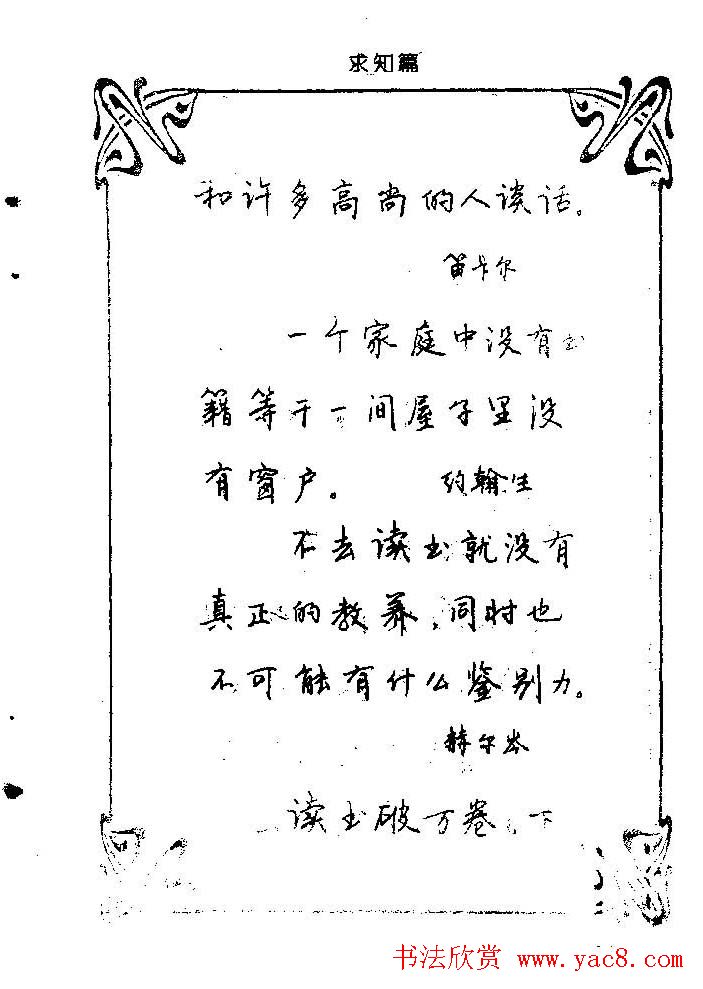 求知篇
和许多高尚的人谈话。
笛卡尔
一个家庭中没有书
籍等于一间屋子里没
有窗户。 约翰生
不去读书就没有
真正的教养,同时也
不可能有什么鉴别力。
赫尔岑
读书破万卷,下
书法欣赏 www.yac8.com